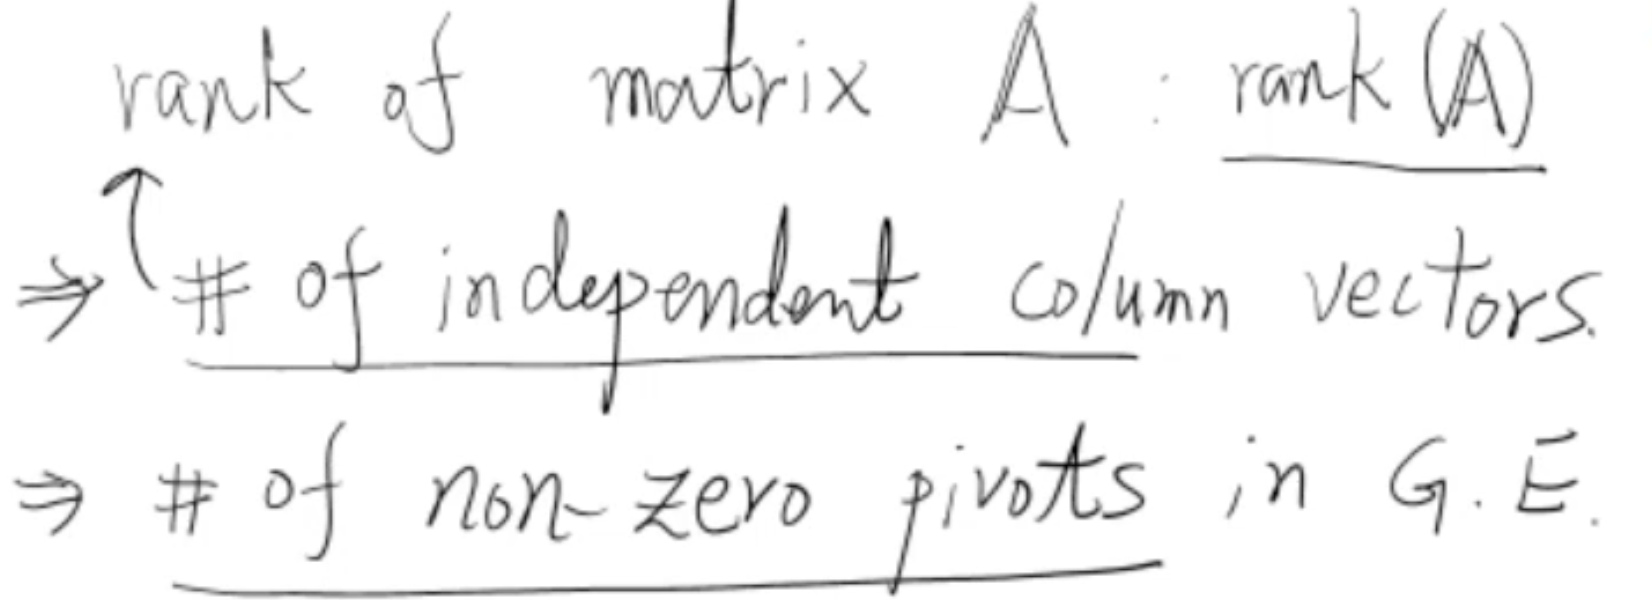 rank of matrix A : rank (A)
⇒ # of independent column vectors.
⇒ # of non-zero pivots in G.E.